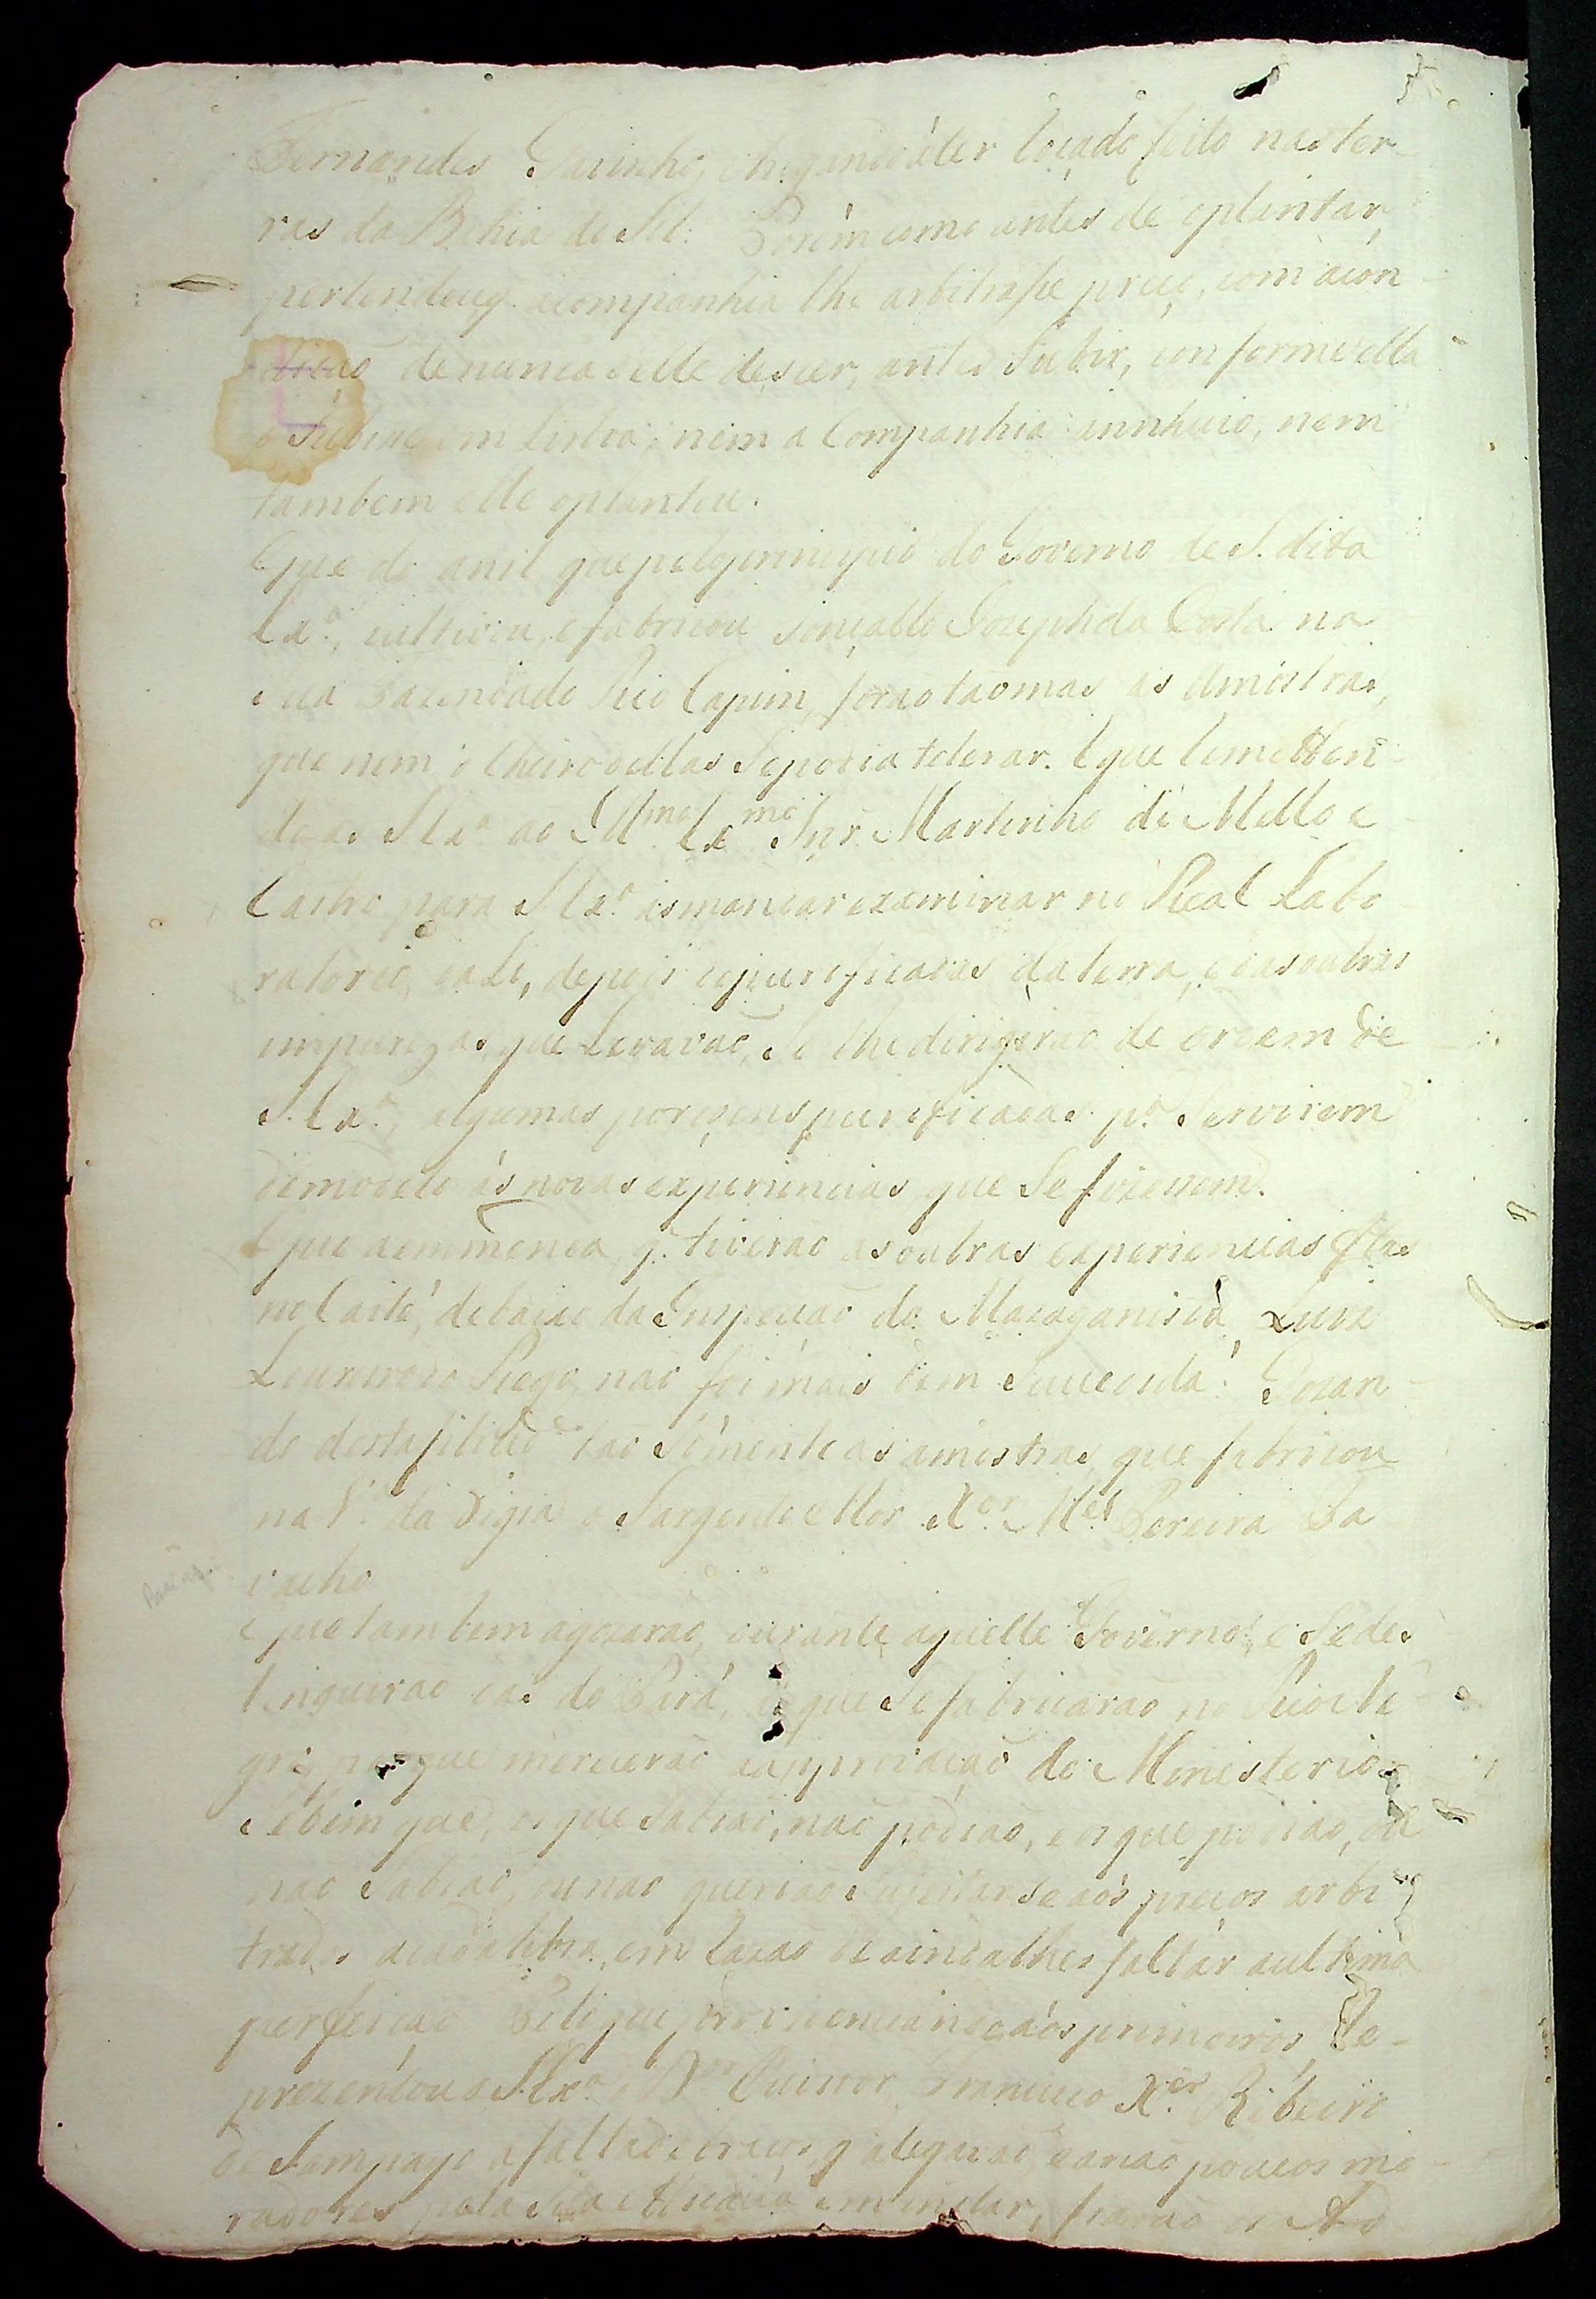 Fernandes Gavinho, chegando áter roçado feito nas ter-
ras da Bahia do Sol: Porèm como antes de oplantar,
pertendeu q. acompanhia lhe arbitrasse preço, com acon-
dicaõ de nunca delle descer, antes Subir, conforme ella
o Subisse em Lisboa; nem a Companhia annuio, nem
tambem elle oplantou.
Que do anil, que pelo principio do Governo de S. dita
Exª., cultivou, e fabricou Gonçallo Joseph da Costa na
sua Fazenda do Rio Capim, foraõ taõ mas as amostras,
que nem o cheiro dellas Se podia tolerar. E que remetten-
do as S Exª. ao Illmo. Exmo. Snr. Martinho de Mello e
Castro para S Exª. as mandar examinar no Real Labo-
ratorio, dali, depois de purificadas da terra, e das outras
impurezas, que Levavaõ, Se lhe dirigiraõ de ordem de
S. Exª., algumas porçoens purificadas pª. Servirem
de modelo ás novas experiencias, que Se fizessem.
E que aemmenda q. tiveraõ as outras experiencias ftas
no Caité, debaixo da Inspecçaõ do Mazaganista Luiz
Loureiro Rego, naõ foi mais bem Succedida: Gozan-
do desta felicide. taõ Sómente as amostras, que fabricou
na Vª. da Vigia o Sargento Mor Xer. Mel. Pereira
E que tambem agozaraõ, durante aquelle Governo, e Se des-
tinguiraõ das do Pará, as que Se fabricaraõ no Rio Ne-
gro, porque mereceraõ a approvaçaõ do Ministerio.
Se bem que, os que Sabiaõ, naõ podiaõ, e os que podiaõ, ou
naõ Sabiaõ, ou naõ queriaõ Sugeitar Se aos preços arbi-
trados acada libra, em razaõ de ainda lhes faltar aultima
perfeiçaõ. Pelo que providenciando aos primeiros Re-
prezentou a S. Exª. o Dor. Ouvidor Francisco Xer. Ribeiro
de Sampayo afalta de braços, q alegavaõ mo-
radores